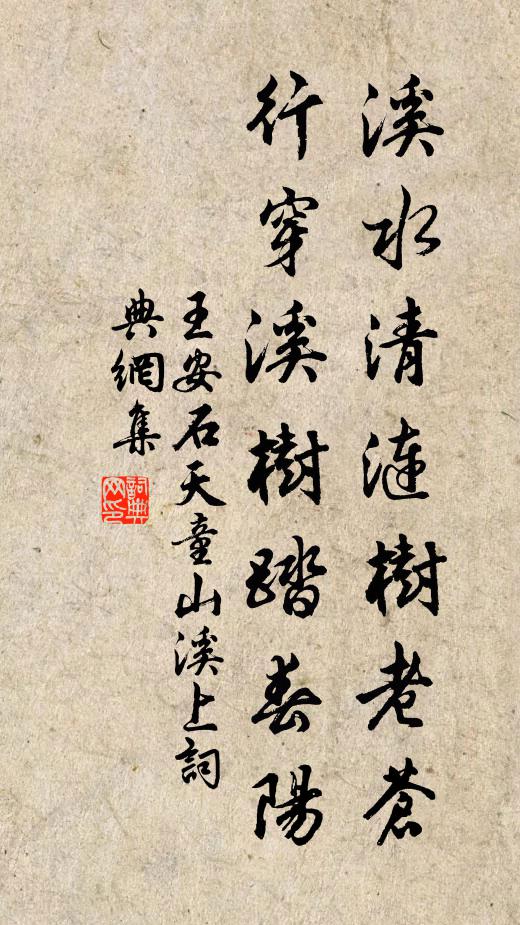 溪水清漣樹老蒼
行穿溪樹踏春陽
王安石天童山溪上詞
典網集
詞典
网印